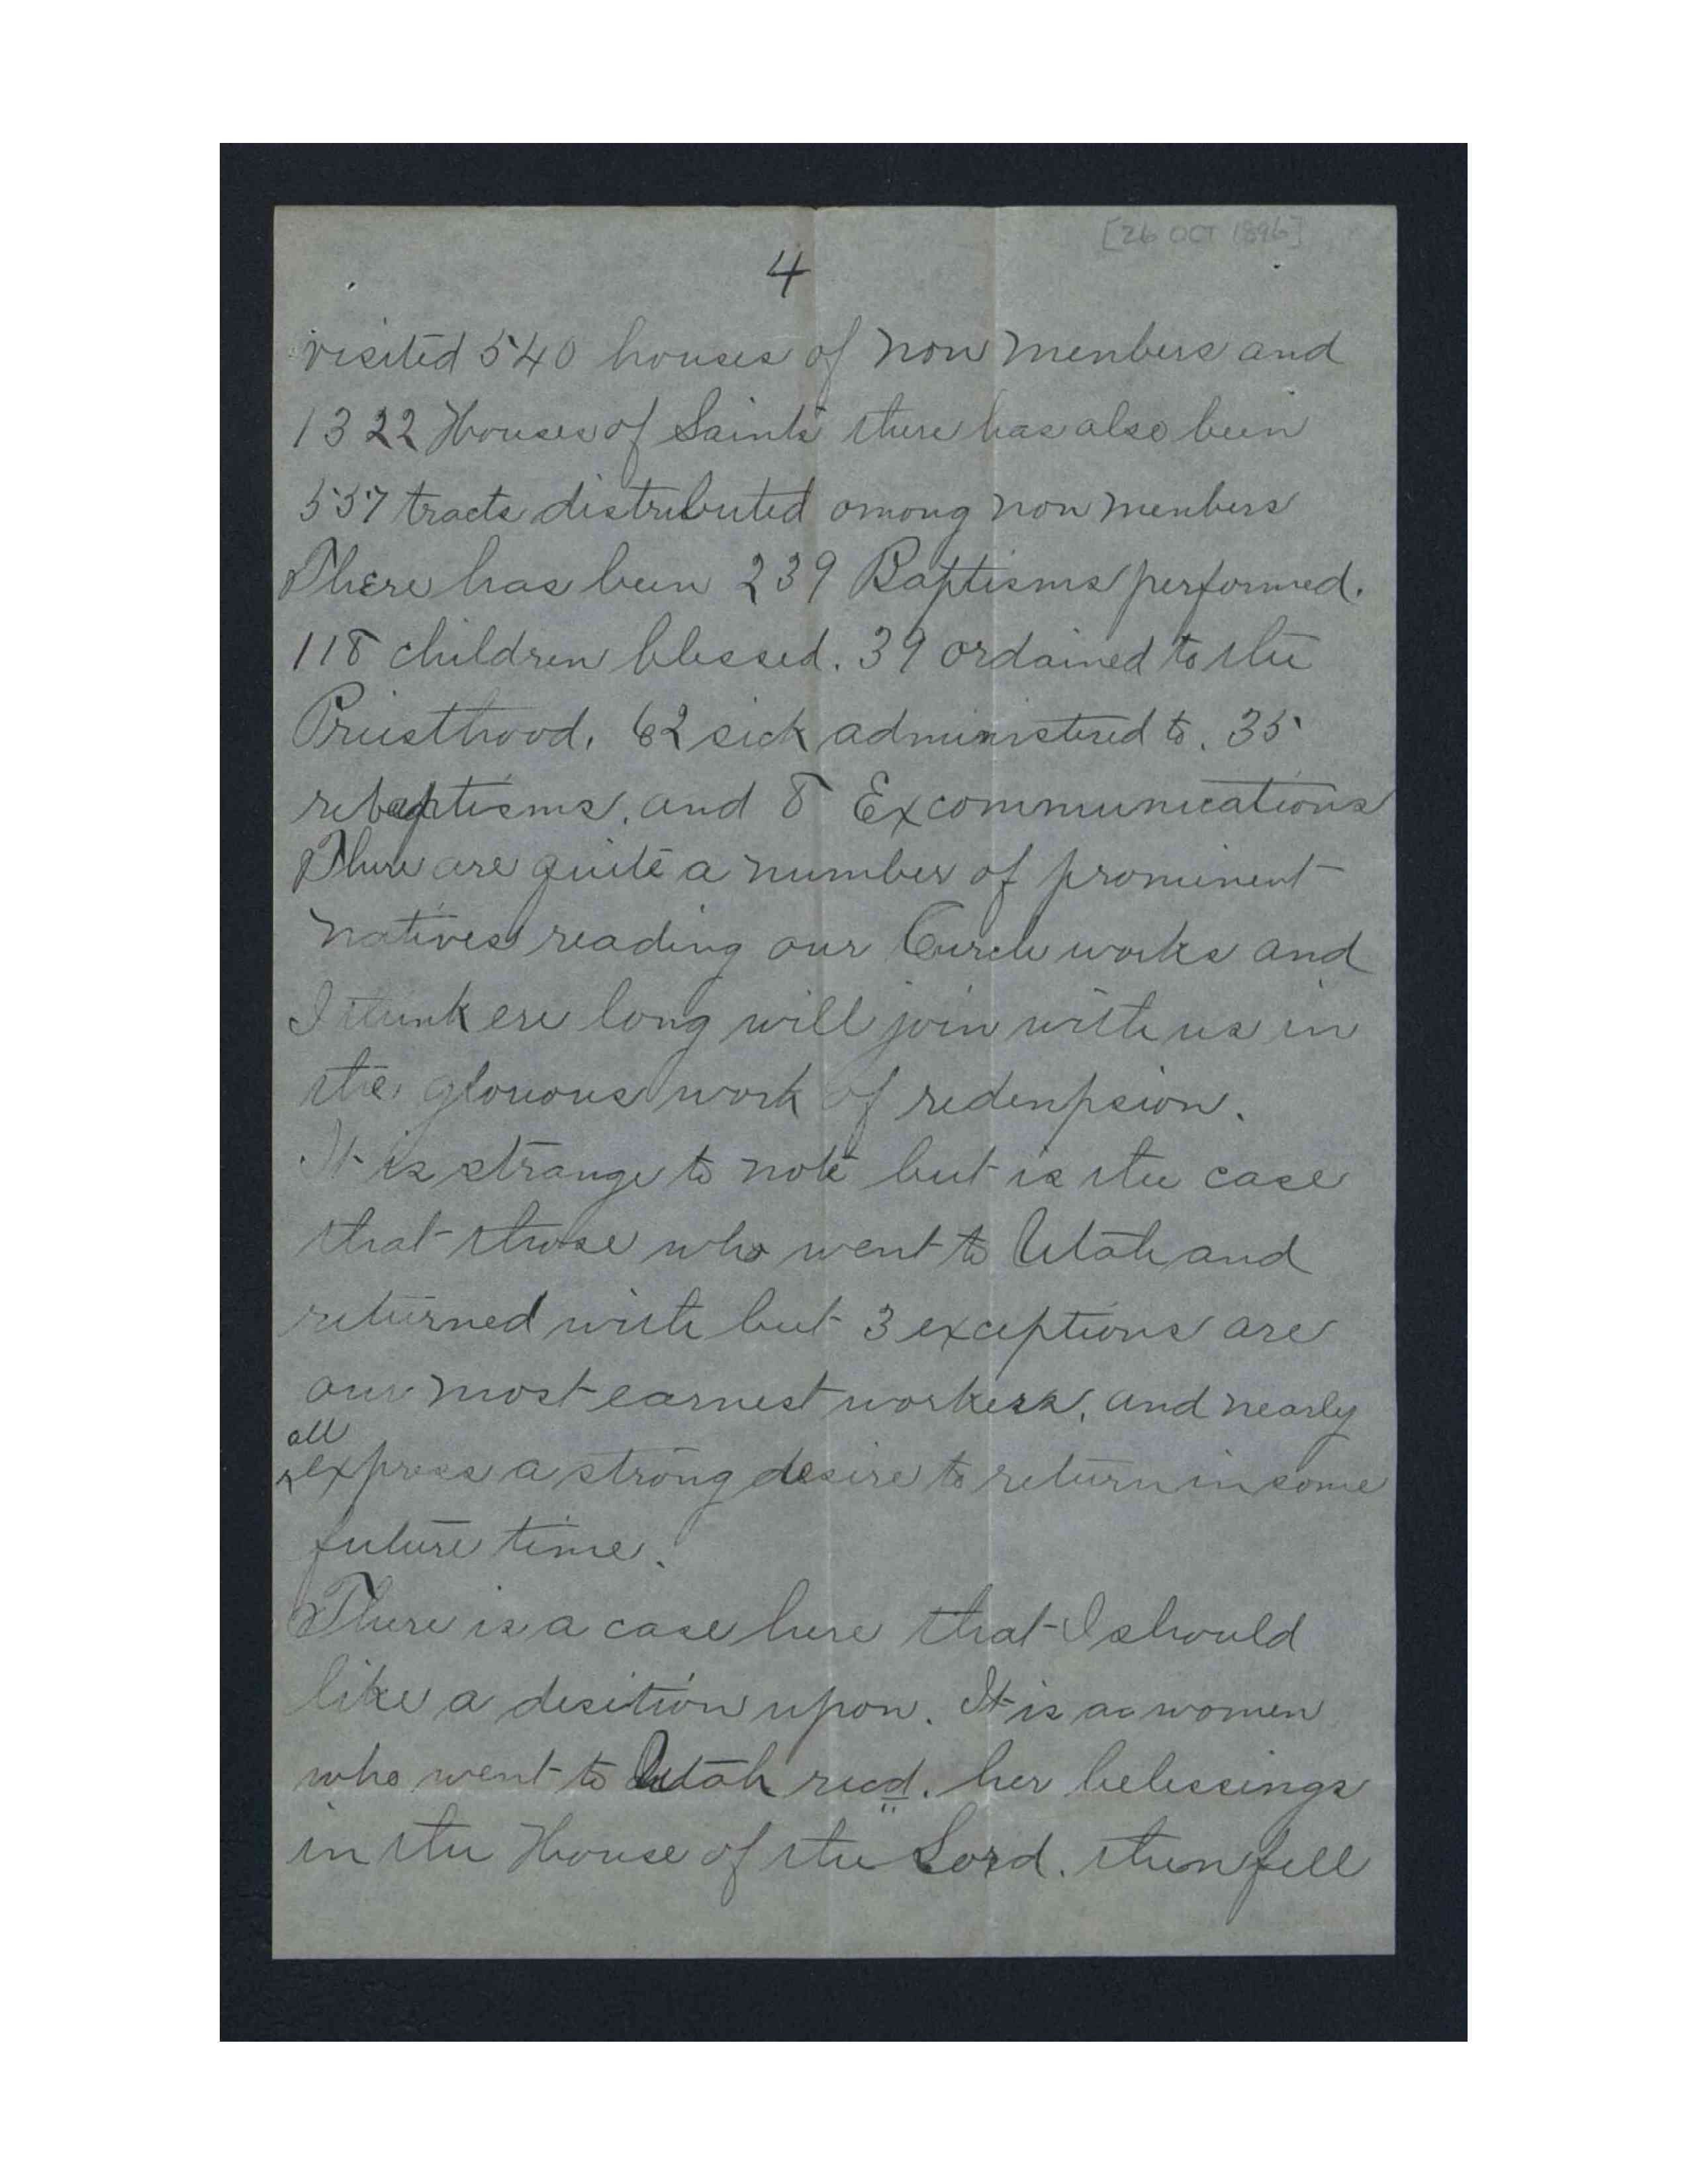 [26 OCT 1896]
4
visited 540 houses of non menbers and
1322 Houses of Saints there has also been
557 tracts distributed among non menbers
There has been 239 Baptisms performed.
118 children blessed. 39 ordained to the
Priesthood. 62 sick administered to. 35
rebaptisms, and 8 Excommunications
There are quite a number of prominent
natives reading our Curch works and
I think ere long will join with us in
the glorious work of redenpsion.
It is strange to note but is the case
that those who went to Utah and
returned with but 3 exceptions are
our most earnest workers, and nearly
all
express a strong desire to return in some
future time.
There is a case here that I should
like a desition upon. It is a women
who went to Utah recd. her belessings
in the House of the Lord. then fell